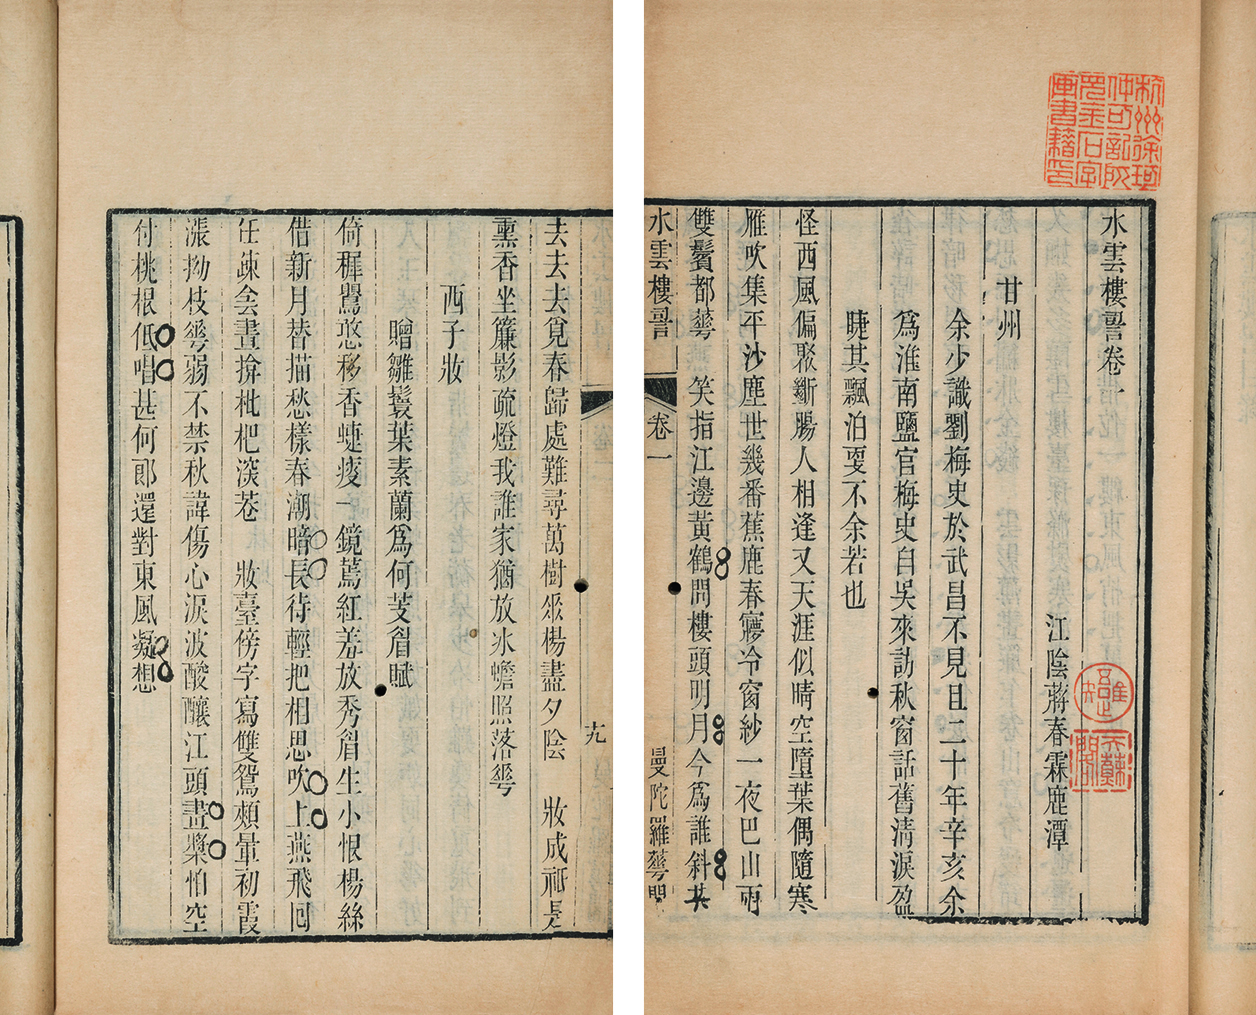 杭州徐珂
仲可記所
金石字
書籍印
水雲樓䛐卷一
江陰蔣春霖鹿潭
甘州
余少識劉梅史於武昌不見且二十年辛亥余
爲淮南鹽官梅史自吳來訪秋窗話舊清淚盈
睫其飄泊㪅不余若也
怪西風偏聚斷腸人相逢又天涯似晴空墮葉偶隨寒
雁吹集平沙塵世幾番蕉鹿春㝱冷窗紗一夜巴山雨
雙鬢都蕐 笑指江邊黃鶴問樓頭明月今爲誰斜共
水雲樓䛐 卷一 曼陀羅蕐閣
九
去去去覓春歸處難尋萬樹垂楊盡夕陰 妝成祇是
熏香坐簾影疏燈我誰家猶放冰蟾照落蕐
西子妝
贈雛鬟葉素蘭爲何芰眉賦
倚穉鶯憨移香蜨瘦一鏡蔫紅羞放秀眉生小恨楊絲
借新月替描愁樣春潮暗長待輕把相思吹上燕飛回
任疎畫揜枇杷深巷 妝臺傍字寫雙鴛頰暈初霞
漲拗枝蕐弱不禁秋諱傷心淚波酸釀江頭畫槳怕空
付桃根低唱甚何郎還對東風凝想